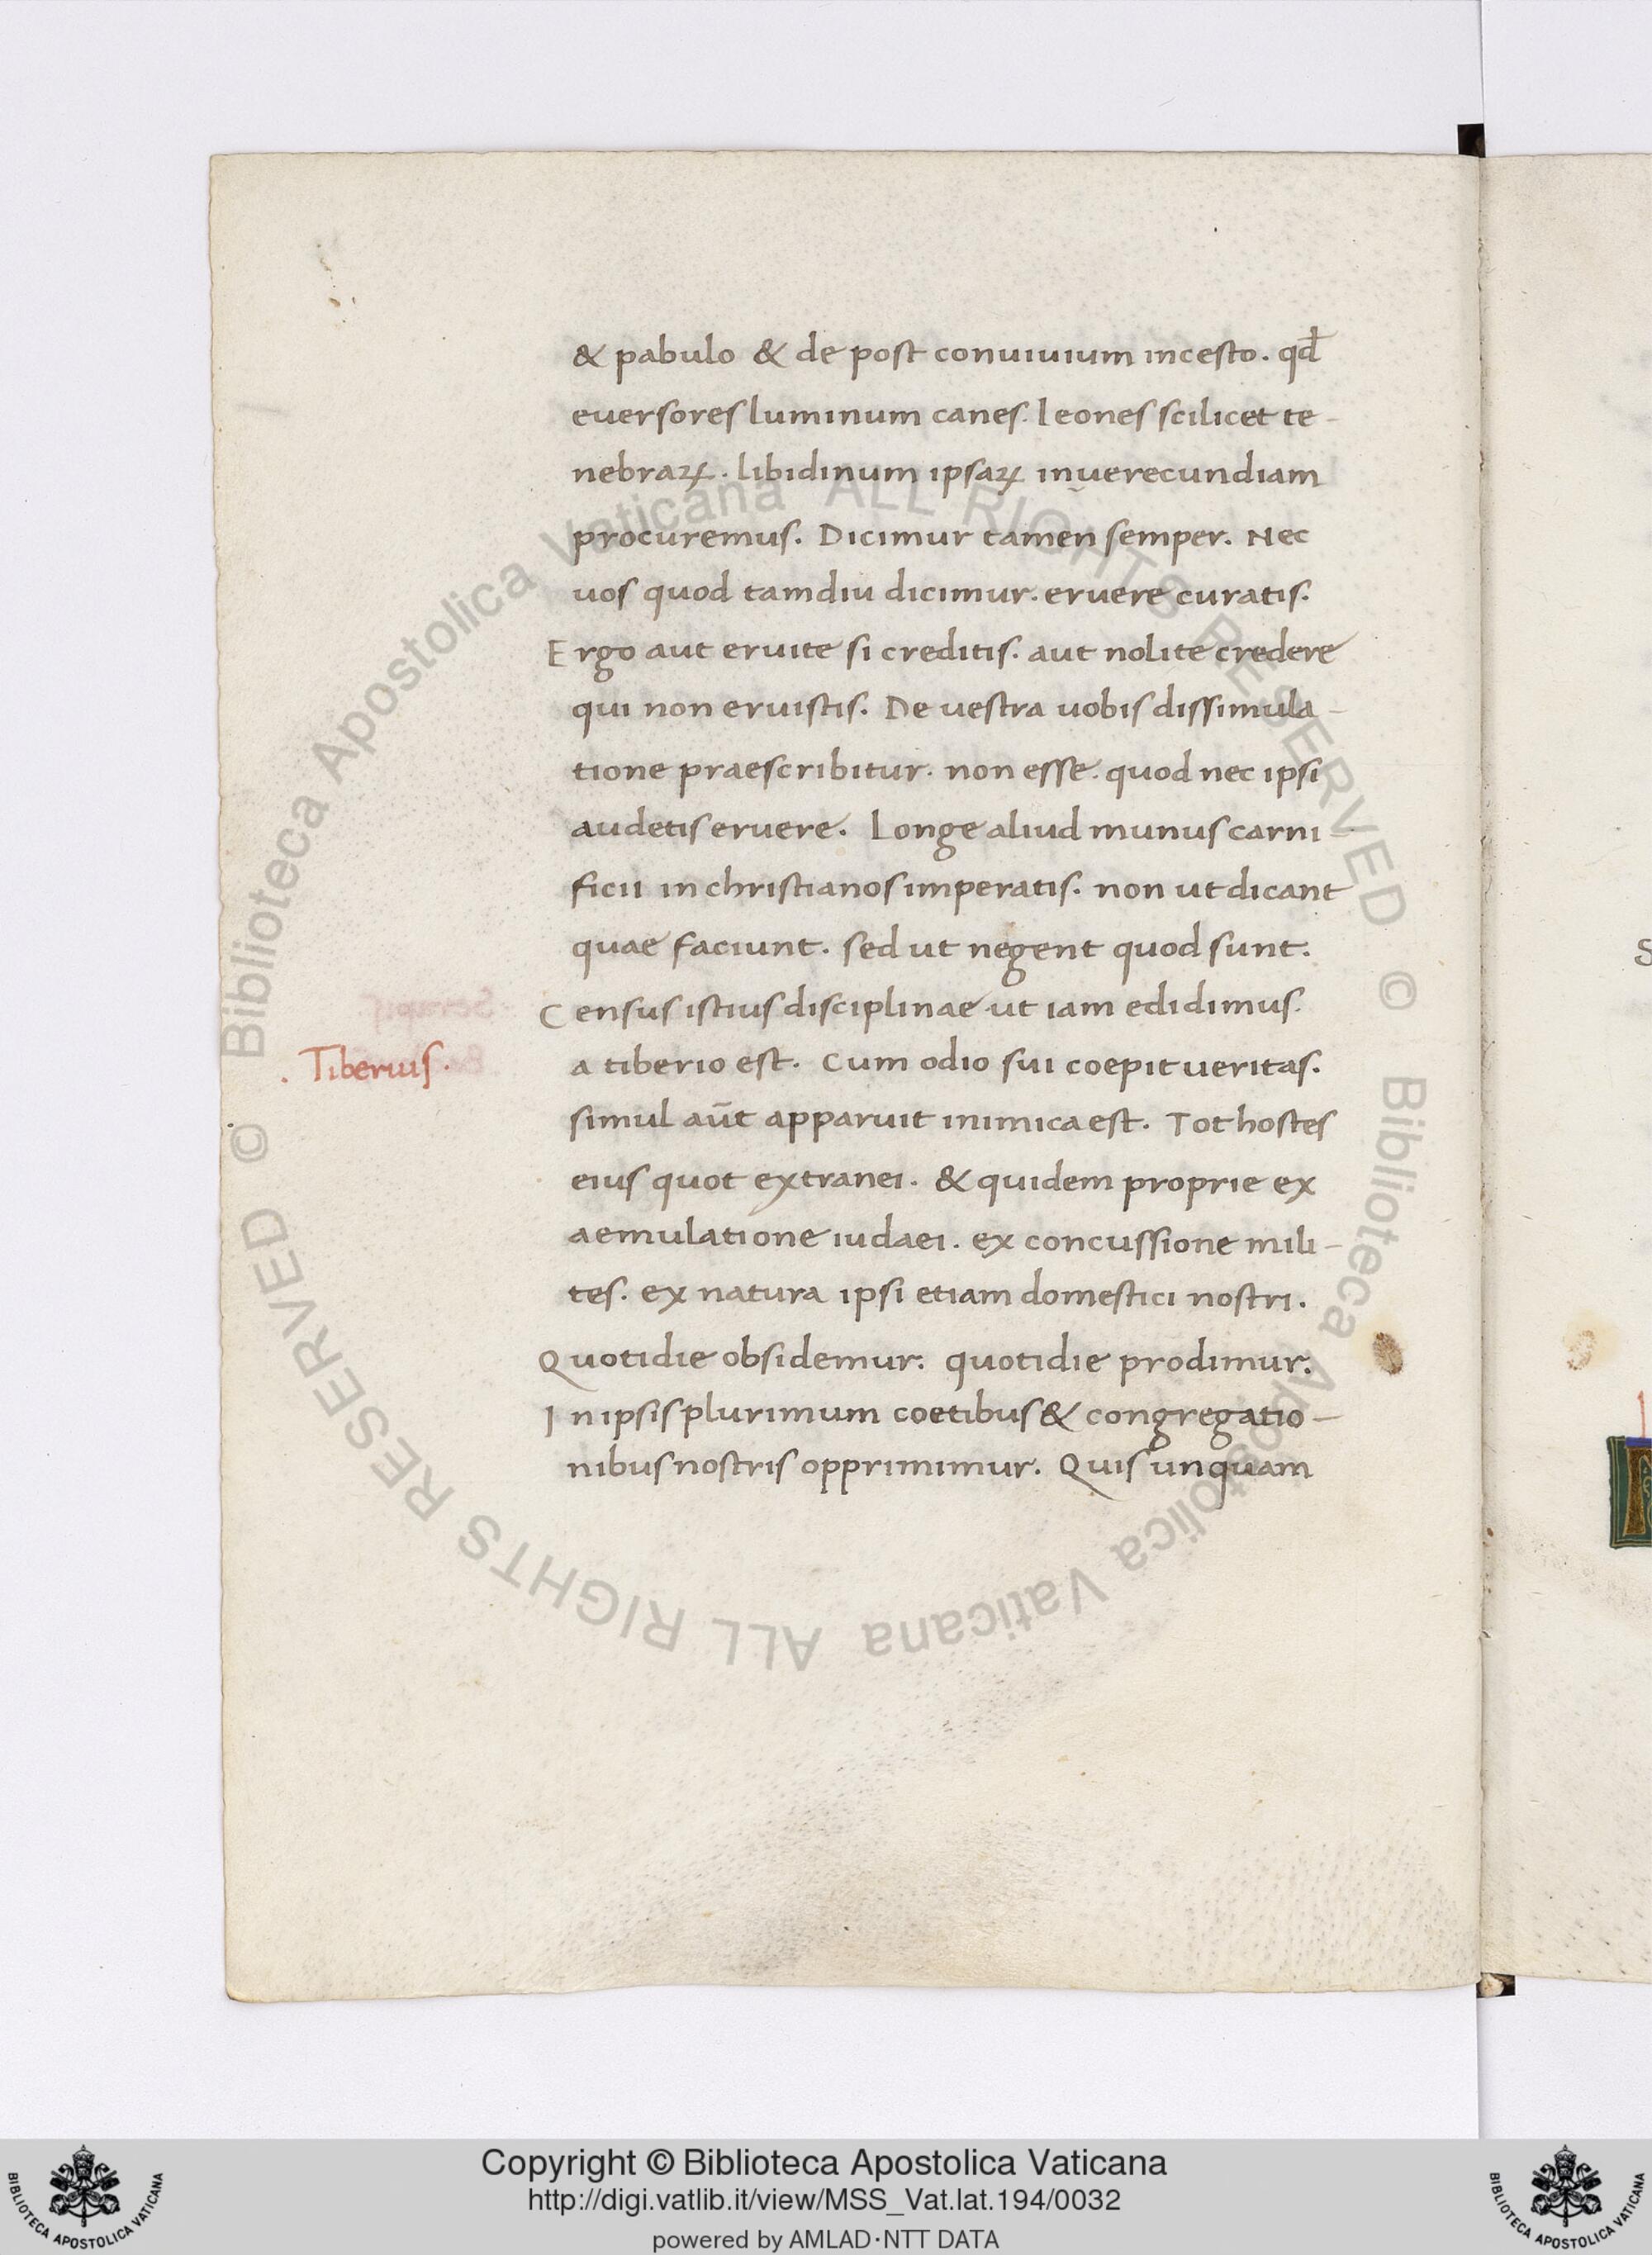 & pabulo & de post conuiuium incesto. qd̄
euersores luminum canes. leones scilicet te-
nebraꝝ. libidinum ipsaꝝ inuerecundiam
procuremus. Dicimur tamen semper. Nec
uos quod tamdiu dicimur. eruere curatis.
Ergo aut eruite si creditis. aut nolite credere
qui non eruistis. De uestra uobis dissimula-
tione praescribitur. non esse. quod nec ipsi
audetis eruere. Longe aliud munus carni-
ficii in christianos imperatis. non ut dicant
quae faciunt. sed ut negent quod sunt.
Census istius disciplinae ut iam edidimus.
. Tiberius.
a tiberio est. Cum odio sui coepit ueritas.
simul aūt apparuit inimica est. Tot hostes
eius quot extranei. & quidem proprie ex
aemulatione iudaei. ex concussione mili-
tes. ex natura ipsi etiam domestici nostri.
Quotidie obsidemur. quotidie prodimur.
In ipsis plurimum coetibus & congregatio-
nibus nostris opprimimur. Quis unquam
© Biblioteca Apostolica Vaticana ALL RIGHTS RESERVED
© Biblioteca Apostolica Vaticana ALL RIGHTS RESERVED
Copyright © Biblioteca Apostolica Vaticana
http://digi.vatlib.it/view/MSS_Vat.lat.194/0032
powered by AMLAD·NTT DATA
BIBLIOTECA APOSTOLICA VATICANA
BIBLIOTECA APOSTOLICA VATICANA